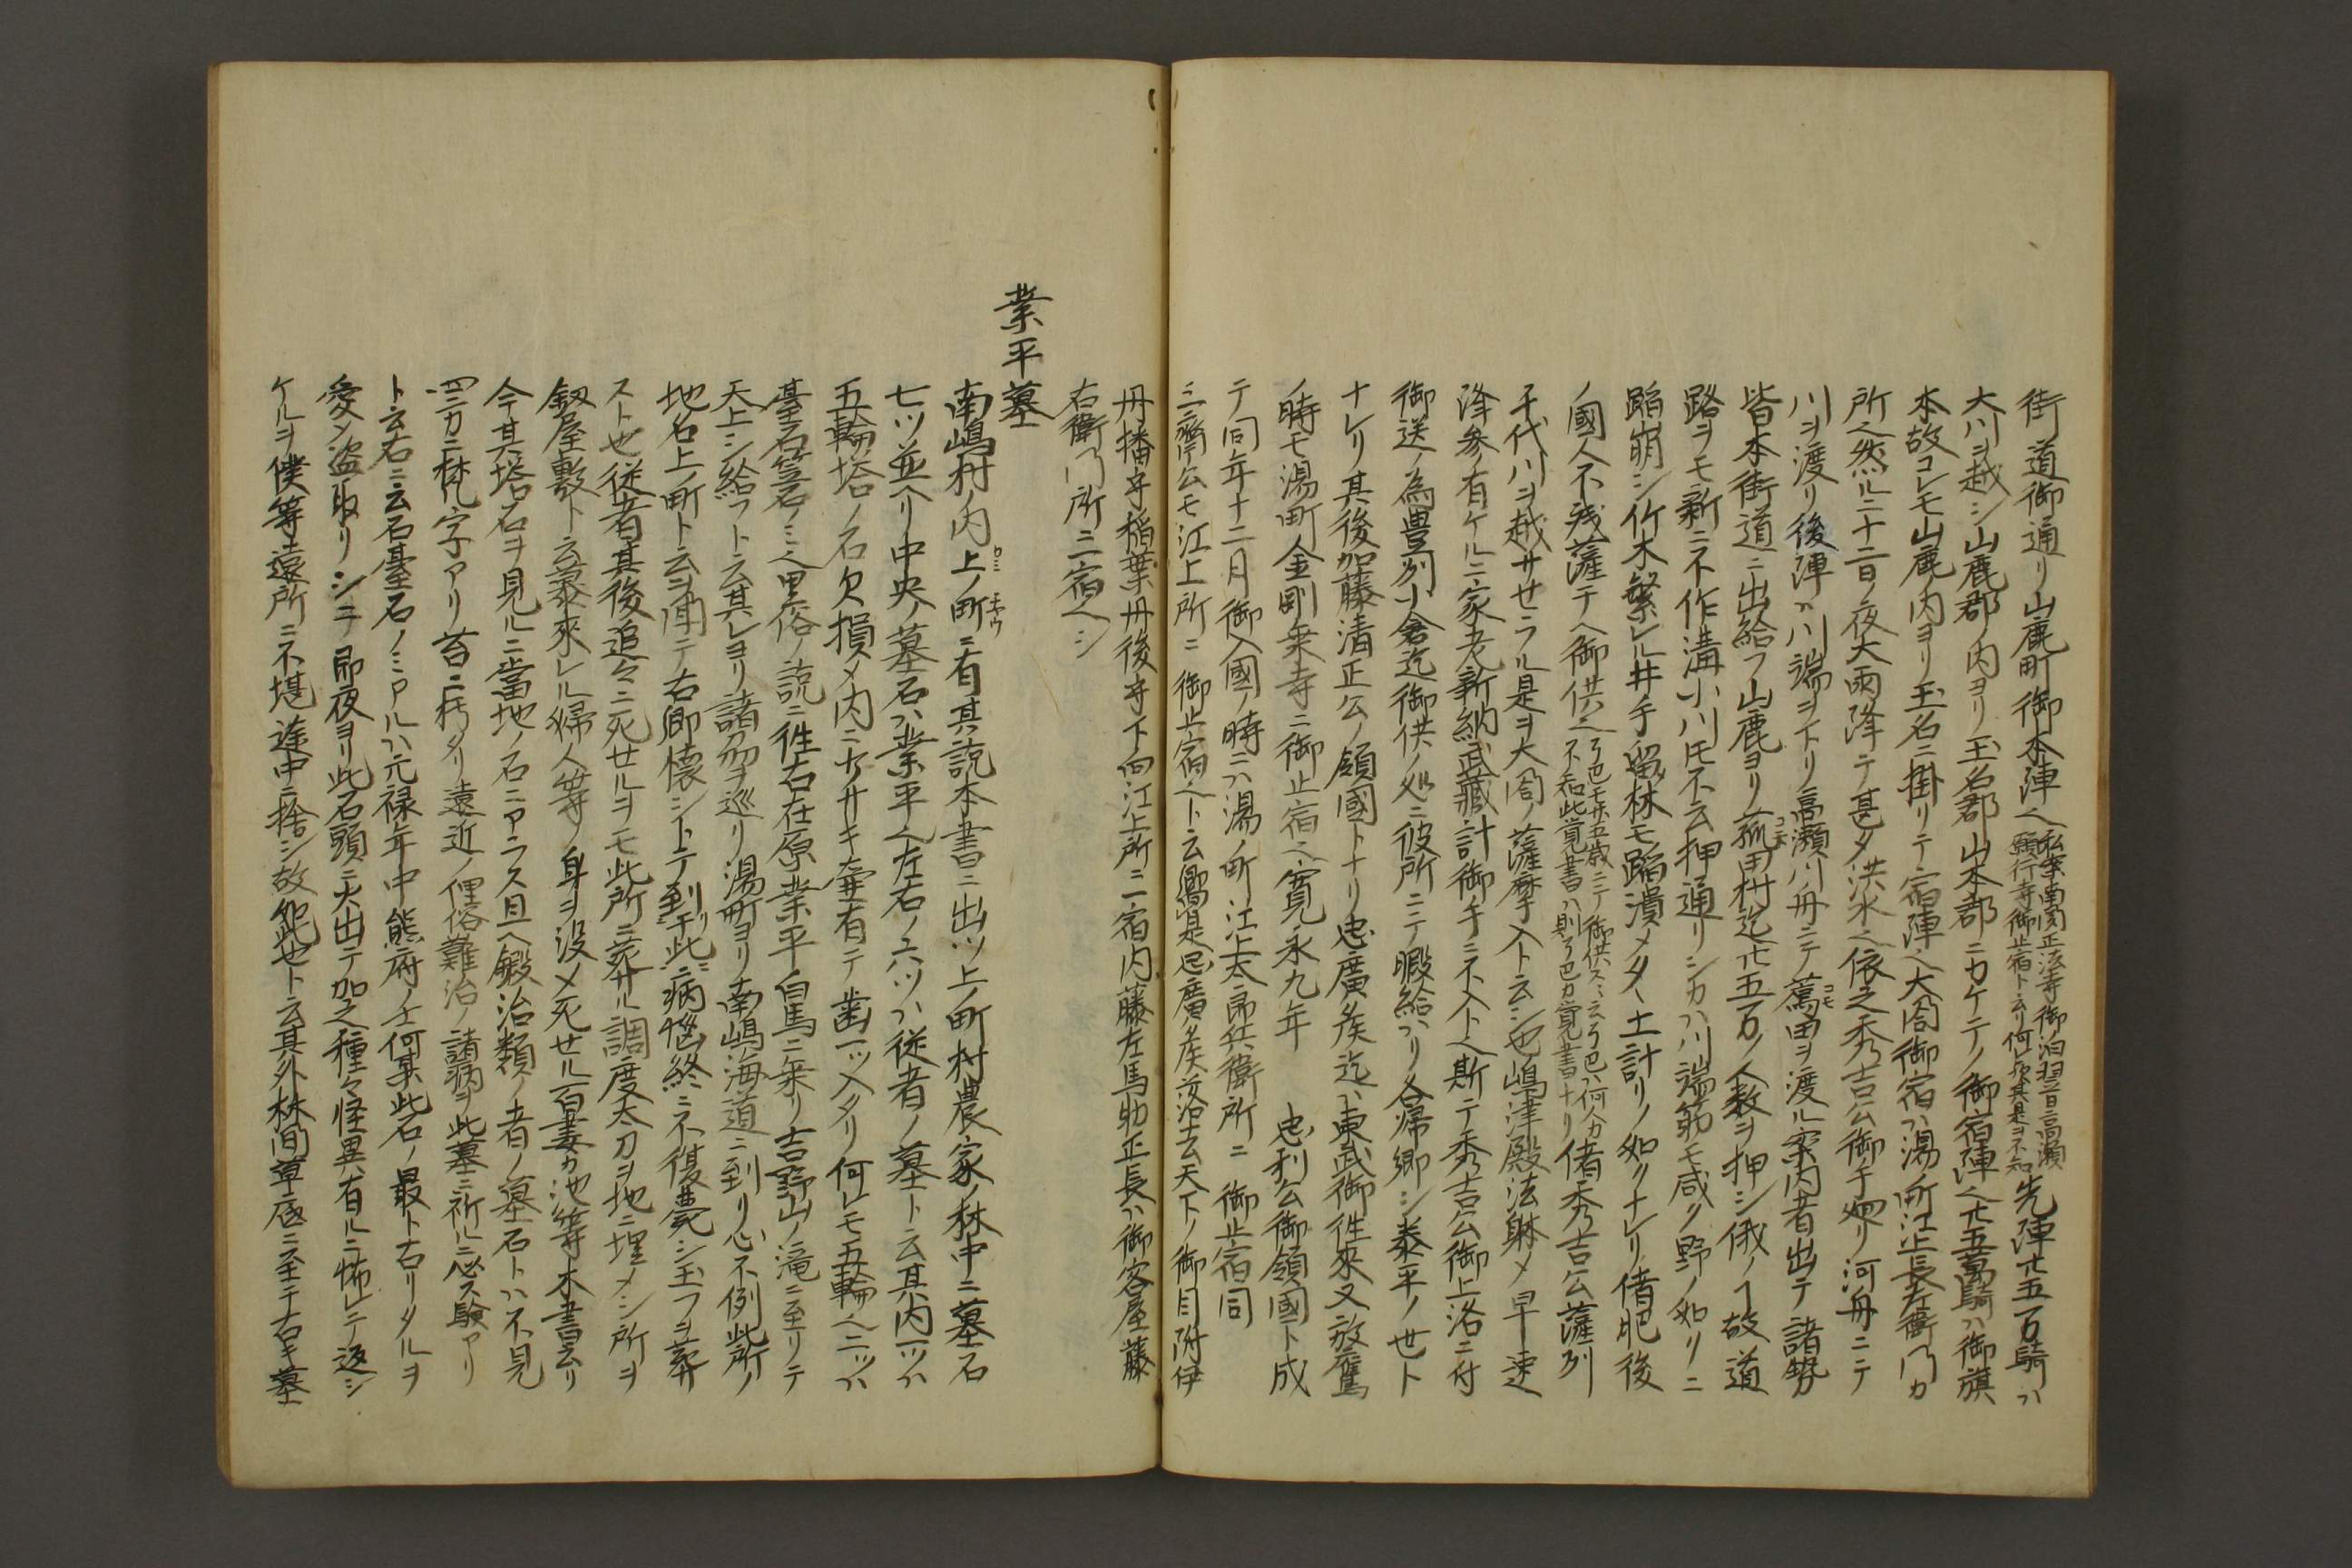 街道御通リ山鹿町御本陣ヘ私案南関正法寺御泊翌日高瀬願行寺御止宿ト云リ何レカ其是ヲ不知先陣廿五万騎ハ
大川ヲ越シ山鹿郡ノ内ヨリ玉名郡山本郡ニカケテノ御宿陣ヘ廿五萬騎ハ御旗
本故コレモ山鹿内ヨリ玉名ニ掛リテ宿陣ヘ大閤御宿ハ湯町江上長左衛門カ
所ヘ然ルニ十二日ノ夜大雨降テ甚タ洪水ヘ依之秀吉公御手廻リ河舟ニテ
川ヲ渡リ後陣ハ川端ヲ下リ高瀬川舟ニテ薦田ヲ渡ル案内者出テ諸勢
皆本街道ニ出給フ山鹿ヨリ菰田村迄廿五万ノ人数ヲ押シ俄ノヿ故道
路ヲモ新ニ不作溝小川圧不云押通リシカハ川端筋モ咸ク野ノ如クニ
踏崩シ竹木繁レル井手留林モ踏潰メタヽ土計リノ如クナレリ偖肥後
ノ國人不残薩テヘ御供ヘ不知此覚書ハ則偖秀吉公薩列
千代川ヲ越サセラル是ヲ大閤ノ薩摩入ト云シ也嶋津殿法躰メ早速
降参有ケルニ家老新納武藏計御手ニ不入トヘ斯テ秀吉公御上洛ニ付
御送ノ為豊列小倉迄御供ノ処ニ彼所ニテ暇給ハリ各帰郷シ泰平ノ世ト
ナレリ其後加藤清正公ノ領國トナリ忠廣矦迄ハ東武御徃來又放鷹
ノ時モ湯町金剛乗寺ニ御止宿ヘ寛永九年 忠利公御領國ト成
テ同年十二月御入國ノ時ニハ湯ノ町江上太郎兵衛所ニ 御止宿同
三齋公モ江上所ニ 御止宿ヘト云忠廣矦没落天下ノ御目附伊
丹播守稲葉丹後守下向江上所ニ宿内藤左馬助正長ハ御客屋藤
右衛門所ニ宿ヘシ
業平墓
南嶋村ノ内上ノ町ニ有其説本書ニ出ツ上ノ町村農家ノ林中ニ墓石
七ツ並ヘリ中央ノ墓石ハ業平ヘ左右ノ六ツハ従者ノ墓ト云其内一ツハ
五輪塔ノ石欠損メ内ニ小サキ壷有テ歯一ツ入タリ何レモ五輪ヘ二ツハ
臺石笠石ノミヘ里俗ノ説ニ徃古在原業平白馬ニ乗リ吉野山ノ滝ニ至リテ
天上シ給フト云其レヨリ諸刕ヲ巡リ湯町ヨリ南嶋海道ニ到リ心不例此所ノ
地名上ノ町ト云ヲ聞テ古郷懐シトテ到于此病悩終ニ不復薨シ玉フヲ葬
スト也従者其後追々ニ死セルヲモ此所ニ葬ル調度太刀ヲ地ニ埋メシ所ヲ
釼屋敷ト云慕來レル婦人等ノ身ヲ没メ死セル百妻カ池等本書ニ云リ
今其塔石ヲ見ルニ當地ノ石ニアラス且ヘ鍛冶類ノ者ノ墓石トハ不見
四方ニ梵字アリ苔ニ朽タリ遠近ノ俚俗難治ノ諸病ヲ此墓ニ祈ルニ必ス験アリ
ト云右ニ云石基石ノミアルハ元禄年中熊府ノ士何某此石ノ最ト古リタルヲ
愛メ盗取リシニ即夜ヨリ此石頭ニ火出テ加之種々怪異有ルニ怖レテ返シ
ケルヲ僕等遠所ニ不堪途中ニ捨シ故如此也ト云其外林間草底ニ至テ古キ墓